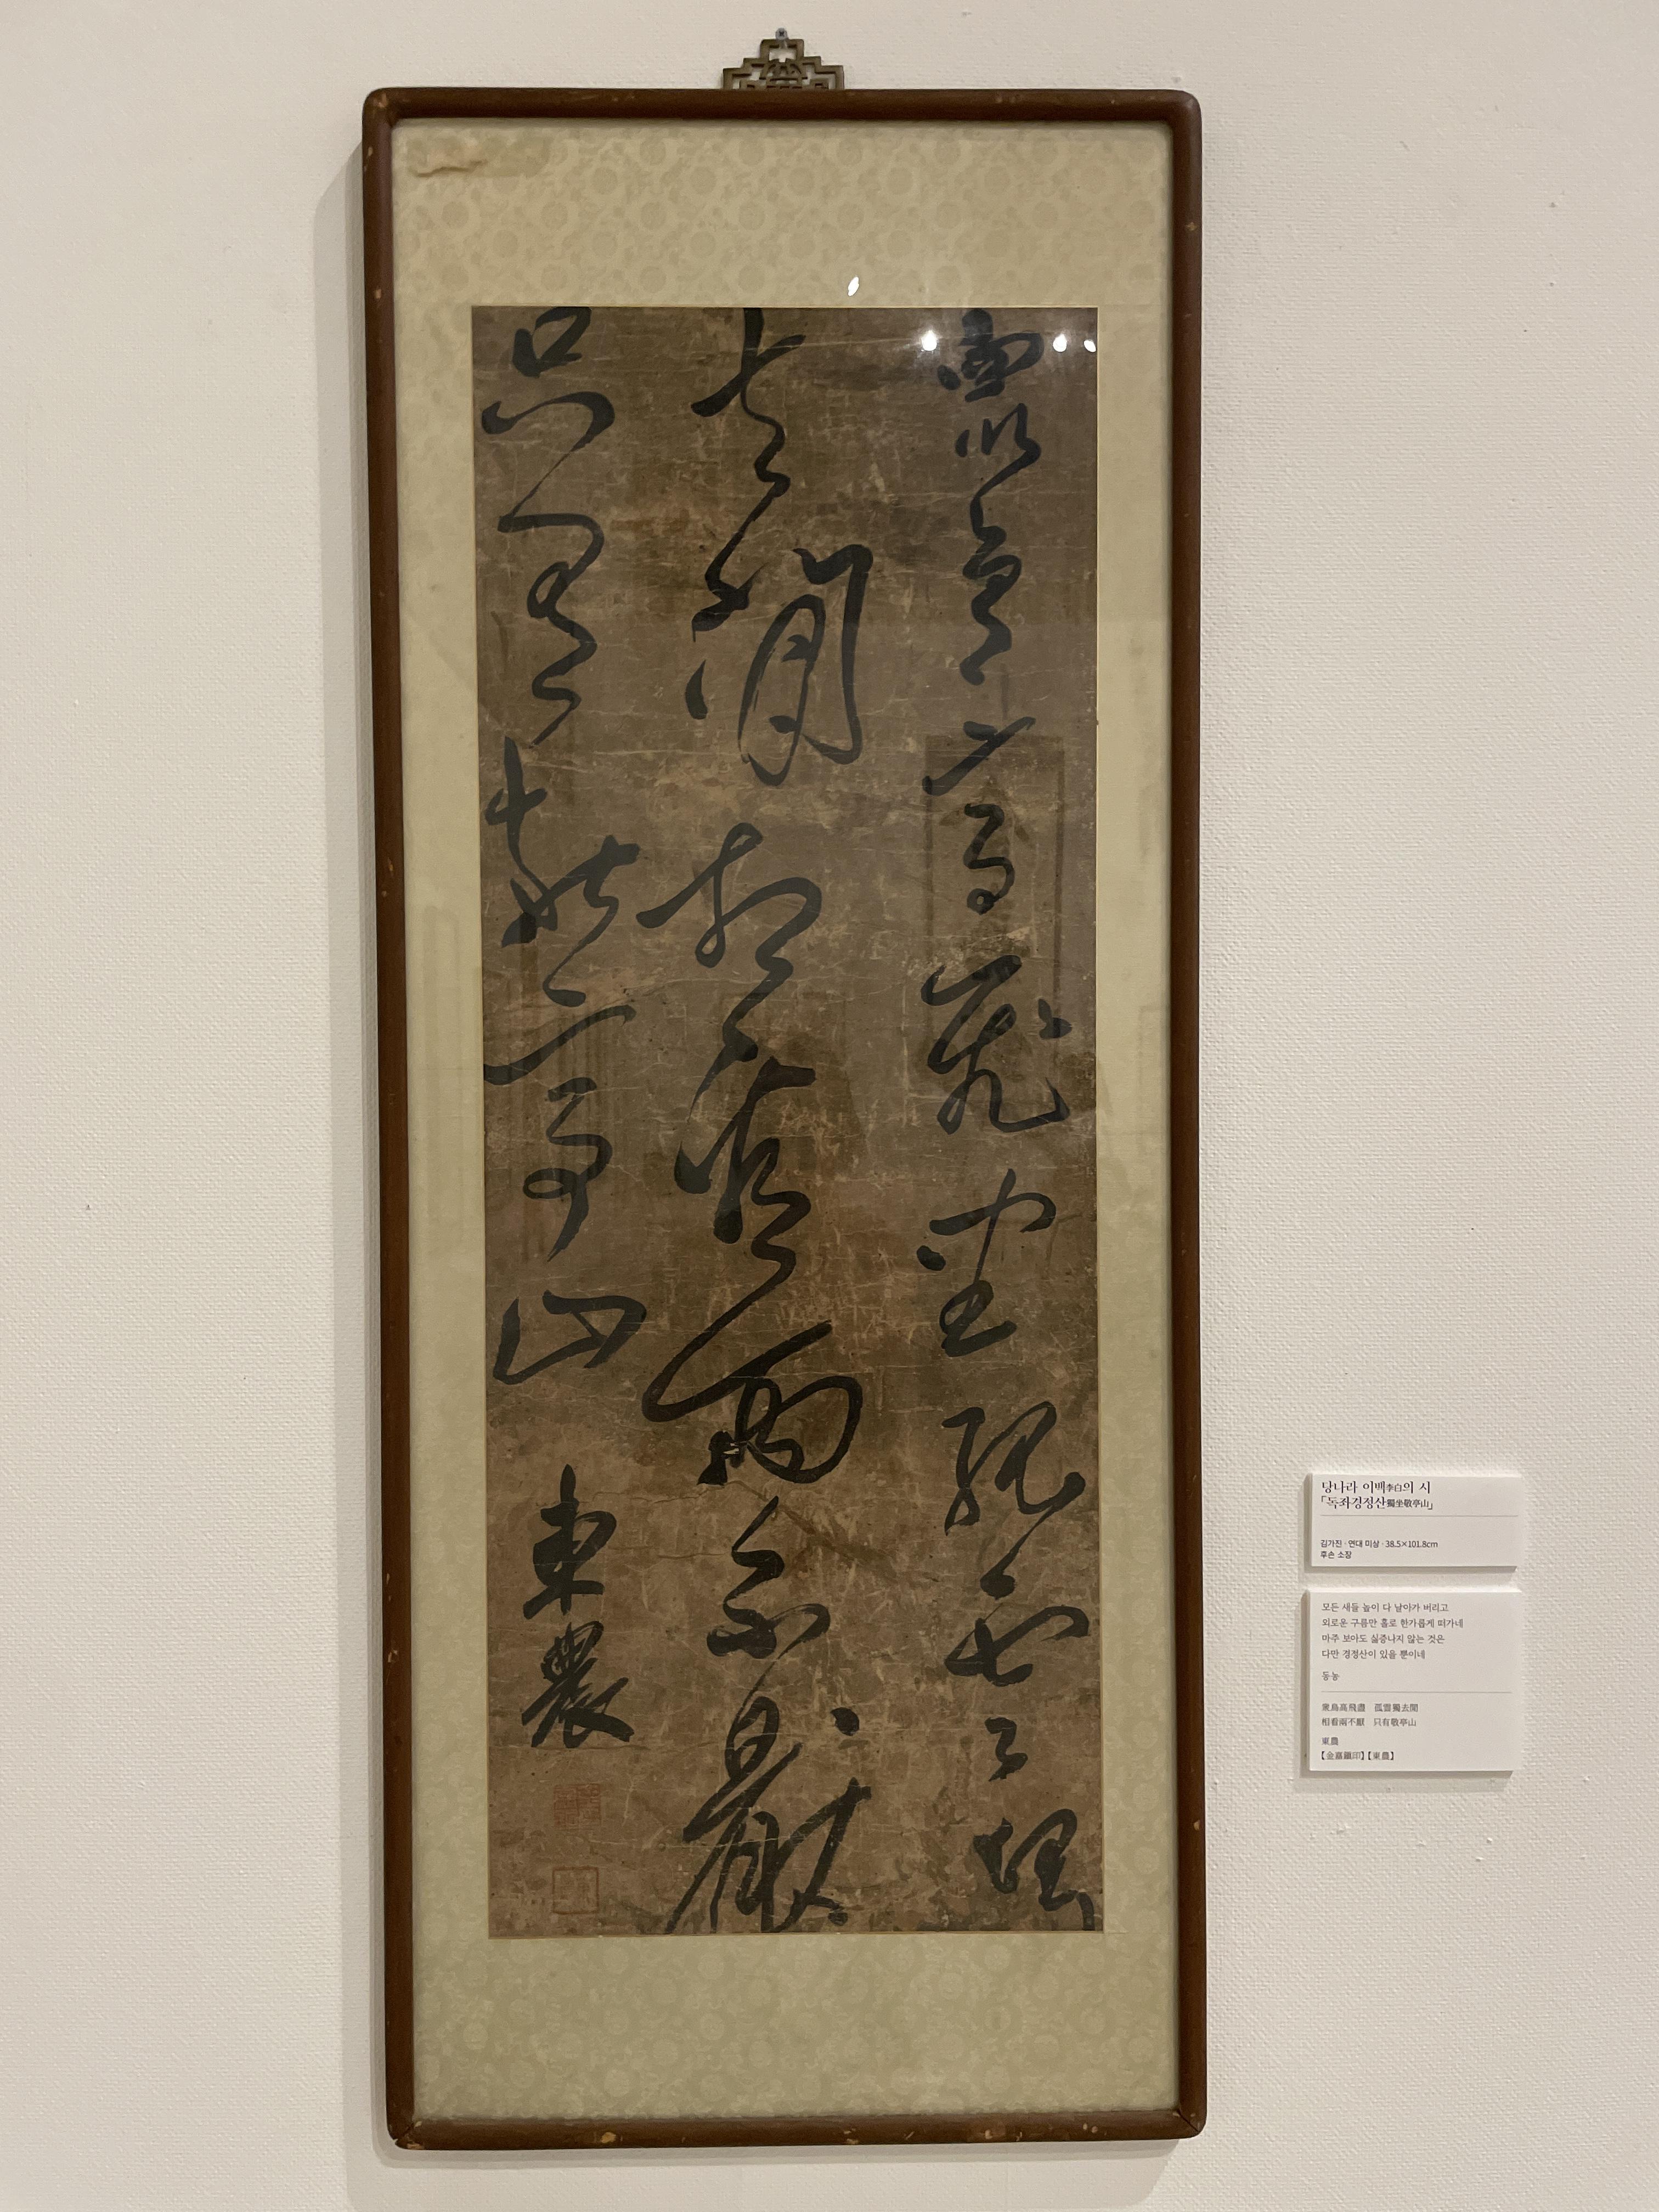 衆鳥高飛盡孤雲獨
去閒相看兩不厭
只有敬亭山 東農
당나라 이백李白의 시
「독좌경정산獨坐敬亭山」
김가진 · 연대 미상 · 38.5×101.8cm
후손 소장
모든 새들 높이 다 날아가 버리고
외로운 구름만 홀로 한가롭게 떠가네
마주 보아도 싫증나지 않는 것은
다만 경정산이 있을 뿐이네
동농
衆鳥高飛盡 孤雲獨去閒
相看兩不厭 只有敬亭山
東農
【金嘉鎭印】【東農】